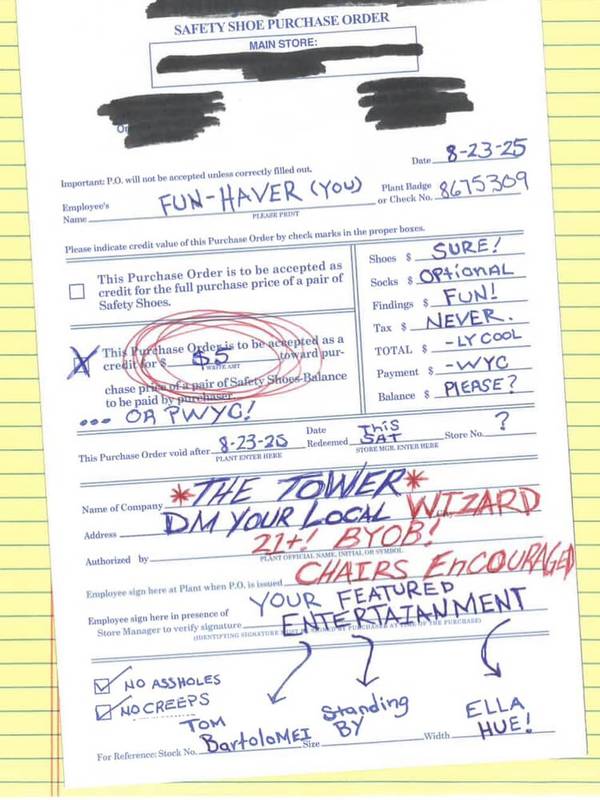 SAFETY SHOE PURCHASE ORDER
MAIN STORE:
Date 8-23-25
Important: P.O. will not be accepted unless correctly filled out.
Employee's Name FUN-HAVER (YOU)
PLEASE PRINT
Plant Badge or Check No. 8675309
Please indicate credit value of this Purchase Order by check marks in the proper boxes.
This Purchase Order is to be accepted as
credit for the full purchase price of a pair of
Safety Shoes.
This Purchase Order is to be accepted as a
credit for $ $5 toward pur-
WRITE AMT
chase price of a pair of Safety Shoes-Balance
to be paid by purchaser
... OR PWYC!
Shoes $ SURE!
Socks $ OPtiONAL
Findings $ FUN!
Tax $ NEVER.
TOTAL $ -LY COOL
Payment $ -WYC
Balance $ PLEASE?
This Purchase Order void after 8-23-25
PLANT ENTER HERE
Date Redeemed THiS SAT
STORE MGR. ENTER HERE
Store No. ?
Name of Company *THE TOWER*
Address DM YOUR LOCAL WIZARD
21+! BYOB!
Authorized by
PLANT OFFICIAL NAME, INITIAL OR SYMBOL
Employee sign here at Plant when P.O. is issued CHAIRS EnCOURAGED
Employee sign here in presence of
Store Manager to verify signature
YOUR FEATURED
ENTERTAINMENT
NO ASSHOLES
NO CREEPS
TOM
BartoloMEI
Standing
BY
ELLA
HUE!
For Reference: Stock No. Size Width